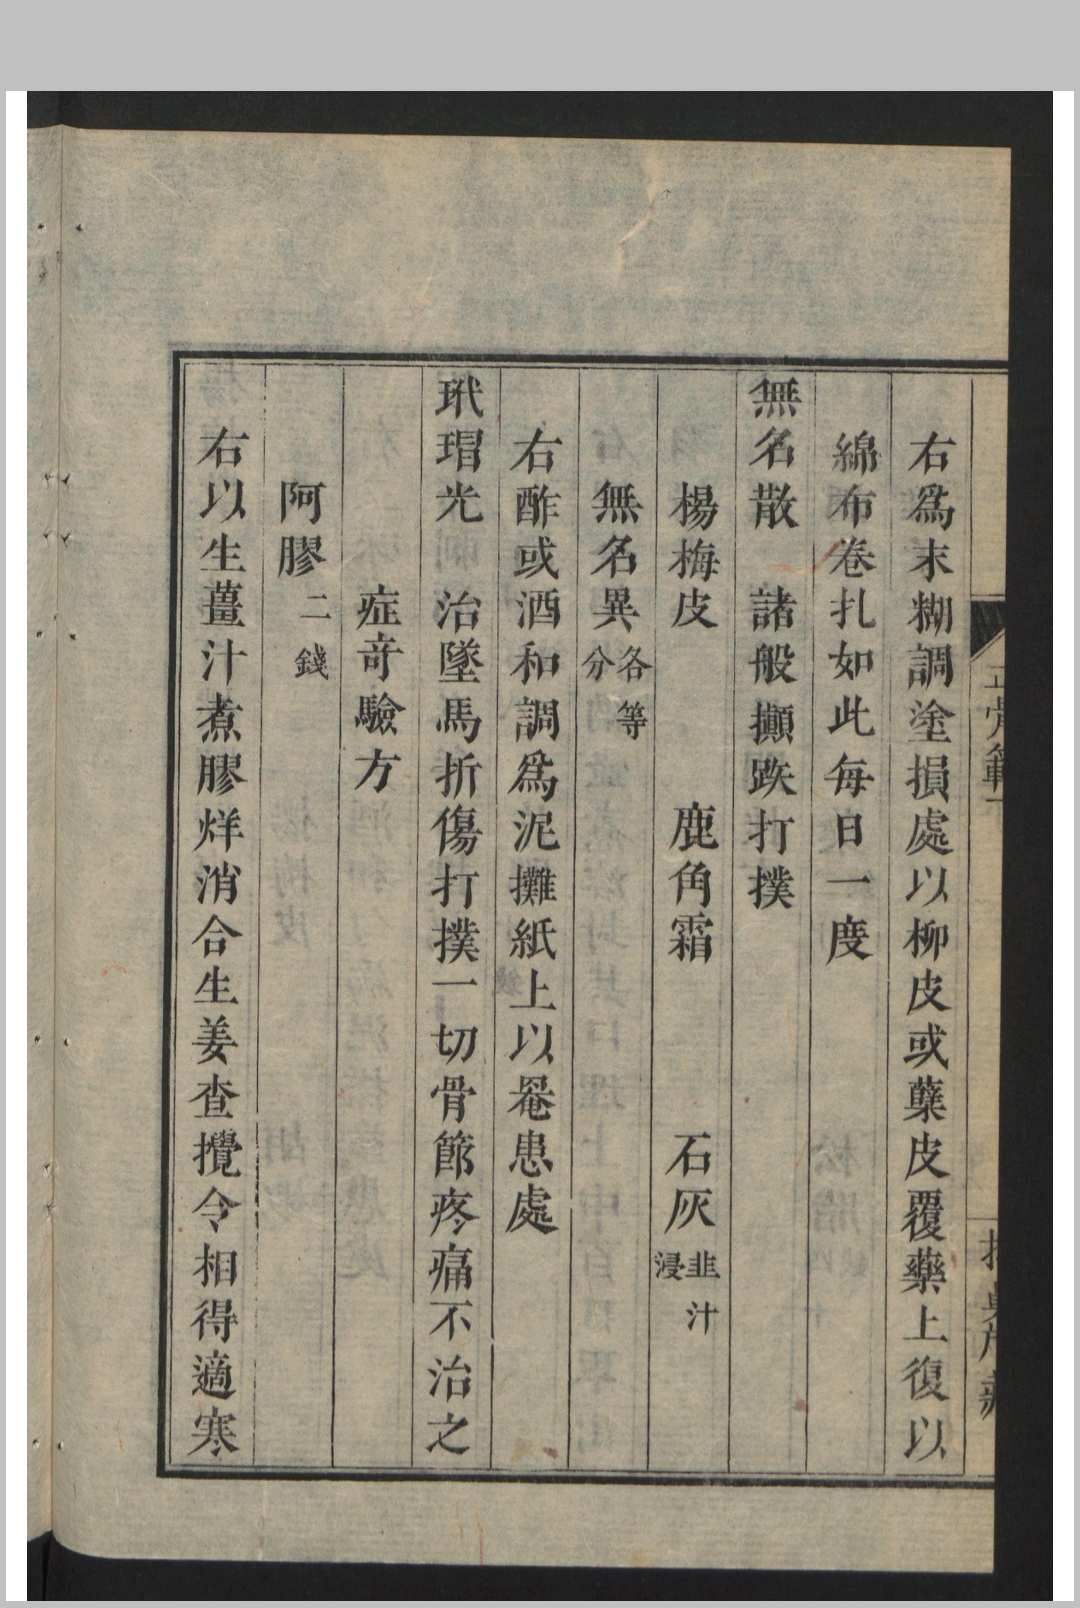 右爲末糊調塗損處以柳皮或蘗皮覆藥上復以
綿布卷扎如此每日一度
無名散　諸般攧跌打撲
楊梅皮　鹿角霜　石灰韭汁浸
無名異各等分
右酢或酒和調爲泥攤紙上以罨患處
玳瑁光　治墜馬折傷打撲一切骨節疼痛不治之
症奇驗方
阿膠二錢
右以生薑汁煮膠烊消合生姜查攪令相得適寒